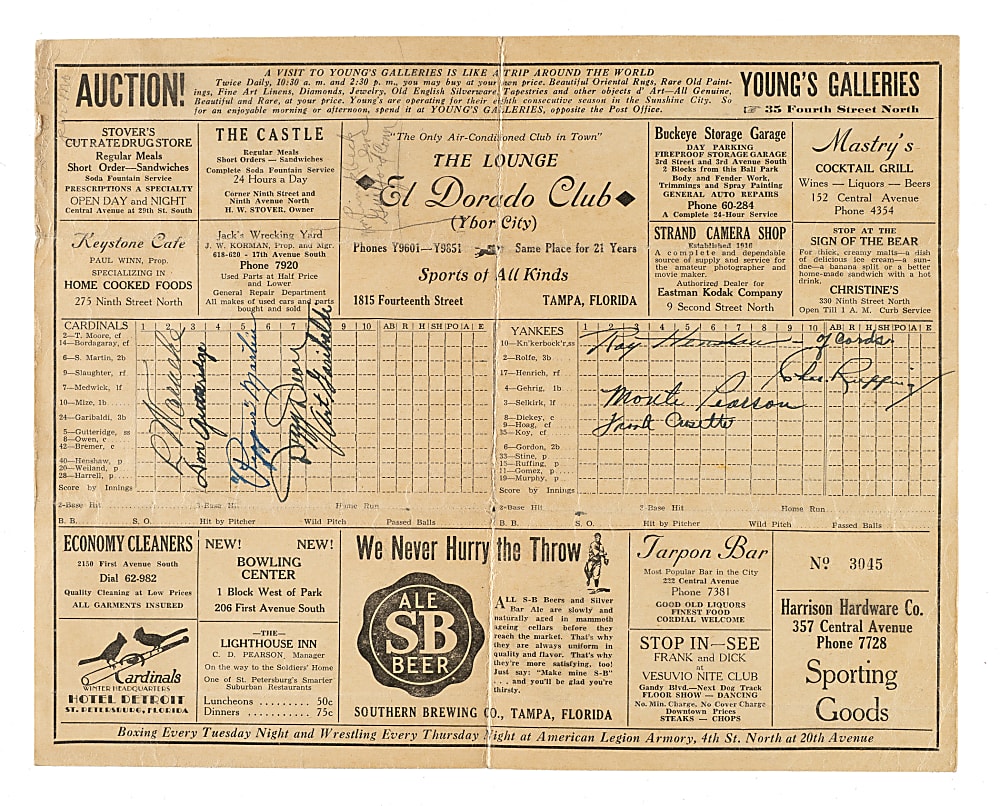 AUCTION!
A VISIT TO YOUNG'S GALLERIES IS LIKE A TRIP AROUND THE WORLD
Twice Daily, 10:30 a. m. and 2:30 p. m., you may buy at your own price. Beautiful Oriental Rugs, Rare Old Paint-
ings, Fine Art Linens, Diamonds, Jewelry, Old English Silverware, Tapestries and other objects d' Art—All Genuine,
Beautiful and Rare, at your price. Young's are operating for their eighth consecutive season in the Sunshine City. So
for an enjoyable morning or afternoon, spend it at YOUNG'S GALLERIES, opposite the Post Office.
YOUNG'S GALLERIES
☞ 35 Fourth Street North
STOVER'S
CUT RATE DRUG STORE
Regular Meals
Short Order—Sandwiches
Soda Fountain Service
PRESCRIPTIONS A SPECIALTY
OPEN DAY and NIGHT
Central Avenue at 29th St. South
THE CASTLE
Regular Meals
Short Orders — Sandwiches
Complete Soda Fountain Service
24 Hours a Day
Corner Ninth Street and
Ninth Avenue North
H. W. STOVER, Owner
"The Only Air-Conditioned Club in Town"
THE LOUNGE
El Dorado Club
(Ybor City)
Phones Y9601—Y9851
Same Place for 21 Years
Sports of All Kinds
1815 Fourteenth Street
TAMPA, FLORIDA
Buckeye Storage Garage
DAY PARKING
FIREPROOF STORAGE GARAGE
3rd Street and 3rd Avenue South
2 Blocks from this Ball Park
Body and Fender Work,
Trimmings and Spray Painting
GENERAL AUTO REPAIRS
Phone 60-284
A Complete 24-Hour Service
Mastry's
COCKTAIL GRILL
Wines — Liquors — Beers
152 Central Avenue
Phone 4354
Keystone Cafe
PAUL WINN, Prop.
SPECIALIZING IN
HOME COOKED FOODS
275 Ninth Street North
Jack's Wrecking Yard
J. W. KORMAN, Prop. and Mgr.
618-620 - 17th Avenue South
Phone 7920
Used Parts at Half Price
and Lower
General Repair Department
All makes of used cars and parts
bought and sold
STRAND CAMERA SHOP
Established 1916
A complete and dependable
source of supply and service for
the amateur photographer and
movie maker.
Authorized Dealer for
Eastman Kodak Company
9 Second Street North
STOP AT THE
SIGN OF THE BEAR
For thick, creamy malts—a dish
of delicious ice cream—a sun-
dae—a banana split or a better
home-made sandwich with a hot
drink.
CHRISTINE'S
330 Ninth Street North
Open Till 1 A. M. Curb Service
CARDINALS 1 2 3 4 5 6 7 8 9 10 AB R H SH PO A E
2—T. Moore, cf
14—Bordagaray, cf
6—S. Martin, 2b
9—Slaughter, rf
7—Medwick, lf
10—Mize, 1b
24—Garibaldi, 3b
5—Gutteridge, ss
8—Owen, c
42—Bremer, c
40—Henshaw, p
20—Weiland, p
28—Harrell, p
Score by Innings
Don Gutteridge
"Pepper" Martin
Dizzy Dean
Art Garibaldi
YANKEES 1 2 3 4 5 6 7 8 9 10 AB R H SH PO A E
10—Kn'kerbock'r,ss
2—Rolfe, 3b
17—Henrich, rf
4—Gehrig, 1b
3—Selkirk, lf
8—Dickey, c
9—Hoag, cf
35—Koy, cf
6—Gordon, 2b
33—Stine, p
15—Ruffing, p
11—Gomez, p
19—Murphy, p
Score by Innings
Roy Henshaw - of Cards.
Chas. Ruffing
Monte Pearson
Frank Crosetti
2-Base Hit 3-Base Hit Home Run
B. B. S. O. Hit by Pitcher Wild Pitch Passed Balls
2-Base Hit 3-Base Hit Home Run
B. B. S. O. Hit by Pitcher Wild Pitch Passed Balls
ECONOMY CLEANERS
2150 First Avenue South
Dial 62-982
Quality Cleaning at Low Prices
ALL GARMENTS INSURED
Cardinals
WINTER HEADQUARTERS
HOTEL DETROIT
ST. PETERSBURG, FLORIDA
NEW! NEW!
BOWLING
CENTER
1 Block West of Park
206 First Avenue South
—THE—
LIGHTHOUSE INN
C. D. PEARSON, Manager
On the way to the Soldiers' Home
One of St. Petersburg's Smarter
Suburban Restaurants
Luncheons .......... 50c
Dinners ............ 75c
We Never Hurry the Throw
ALE
SB
BEER
ALL S-B Beers and Silver
Bar Ale are slowly and
naturally aged in mammoth
ageing cellars before they
reach the market. That's why
they are always uniform in
quality and flavor. That's why
they're more satisfying, too!
Just say: "Make mine S-B"
. . . and you'll be glad you're
thirsty.
SOUTHERN BREWING CO., TAMPA, FLORIDA
Tarpon Bar
Most Popular Bar in the City
222 Central Avenue
Phone 7381
GOOD OLD LIQUORS
FINEST FOOD
CORDIAL WELCOME
STOP IN—SEE
FRANK and DICK
at
VESUVIO NITE CLUB
Gandy Blvd.—Next Dog Track
FLOOR SHOW — DANCING
No. Min. Charge, No Cover Charge
Downtown Prices
STEAKS — CHOPS
Nº 3045
Harrison Hardware Co.
357 Central Avenue
Phone 7728
Sporting
Goods
Boxing Every Tuesday Night and Wrestling Every Thursday Night at American Legion Armory, 4th St. North at 20th Avenue